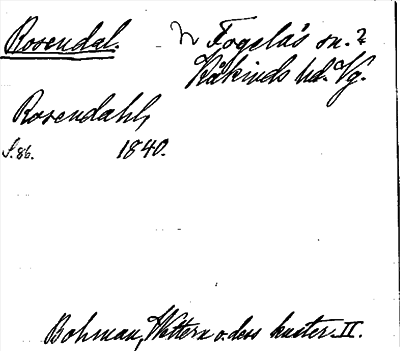 Rosendal. Fogelås sn. ?
Kåkinds hd. Vg.
Rosendahl,
S. 86. 1840.
Bohman, Wettern o. dess kuster. II.